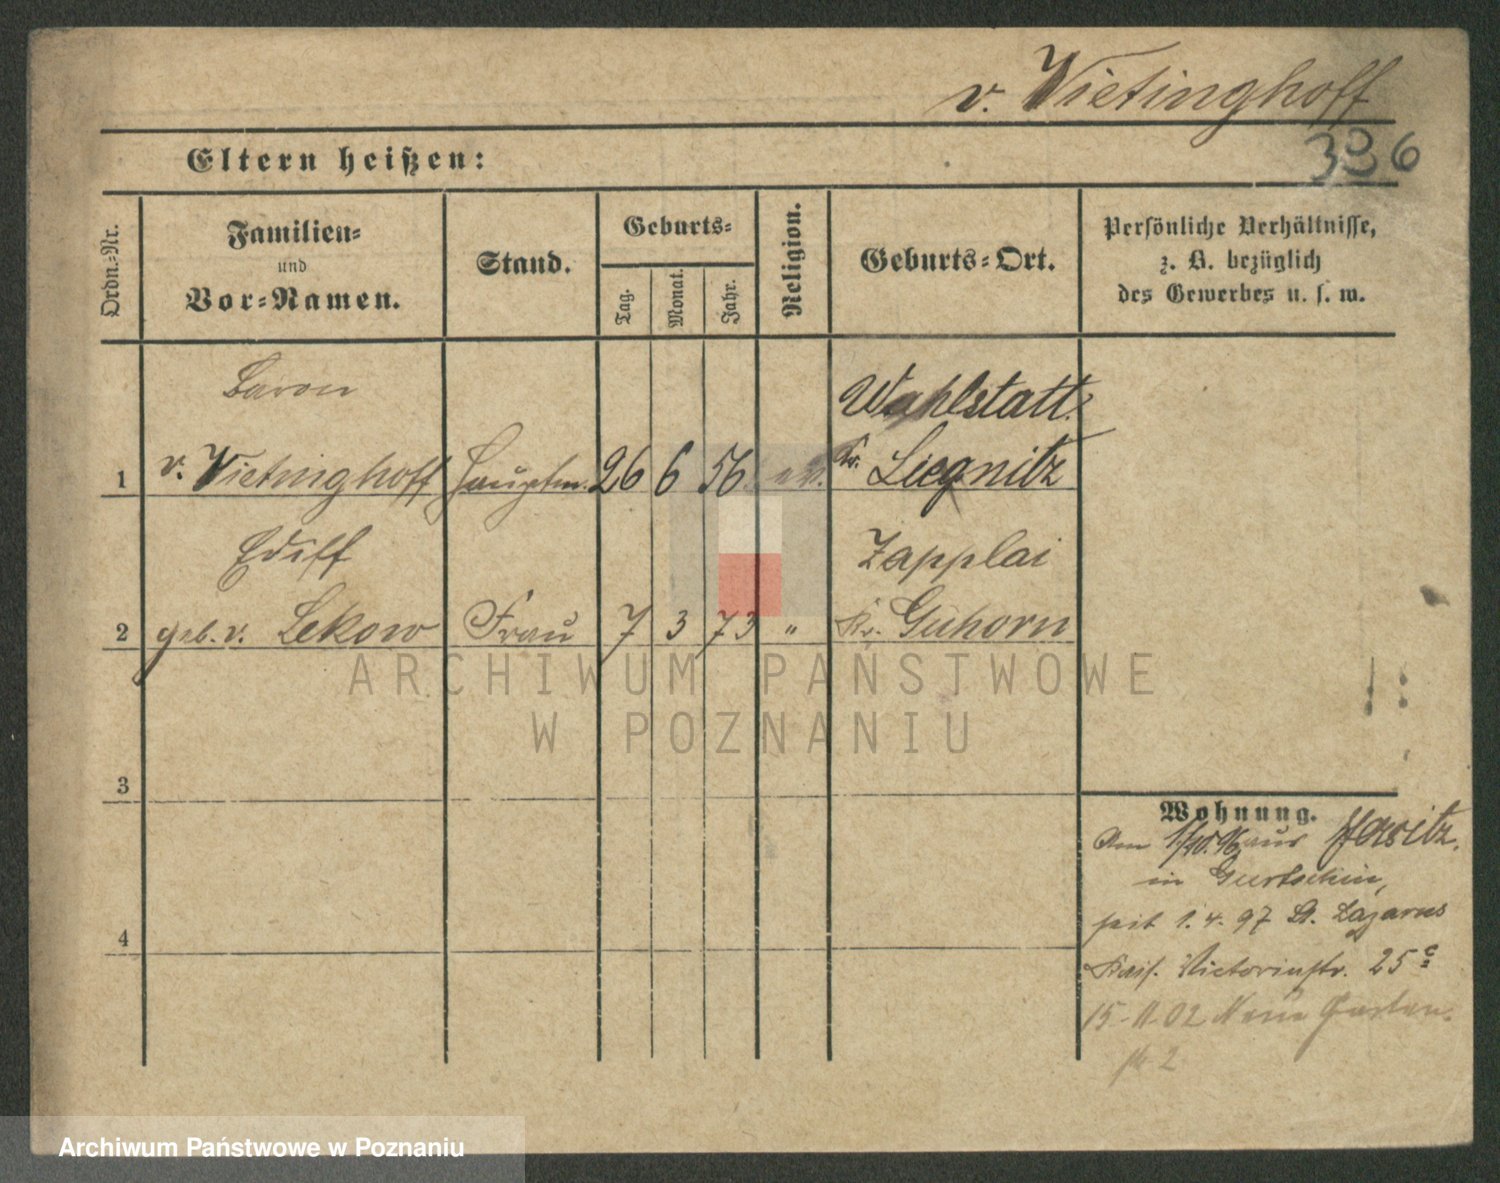 v. Vietinghoff
396
Eltern heißen:
Ordn.-Nr.
Familien-
und
Vor-Namen.
Stand.
Geburts-
Tag.
Monat.
Jahr.
Religion.
Geburts-Ort.
Persönliche Verhältnisse,
z. B. bezüglich
des Gewerbes u. s. w.
Baron
1 v. Vietinghoff Hauptm. 26 6 56 ev.
Wahlstatt
Kr. Liegnitz
Edith
2 geb. v. Lekow Frau 7 3 73 "
Zapplai
Kr. Guhorn
3
4
Wohnung.
Am 1/10.96 aus Jersitz,
in Gurtschin,
seit 1. 4. 97 St. Lazarus
Kais. Victoriastr. 25 c
15-11-02 Neue Garten-
str 2
ARCHIWUM PAŃSTWOWE
W POZNANIU
Archiwum Państwowe w Poznaniu